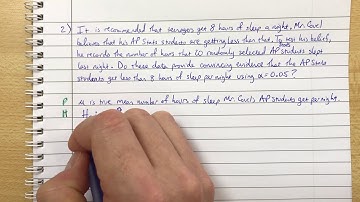 2) It is recommended that teenagers get 8 hours of sleep a night. Mr. Cuel
believes that his AP Stats students are getting less than that. To test his belief,
he records the number of hours that 60 randomly selected AP students slept
last night. Do these data provide convincing evidence that the AP Stats
students get less than 8 hours of sleep per night using α = 0.05?
P μ is true mean number of hours of sleep Mr. Cuel's AP students get per night.
H H